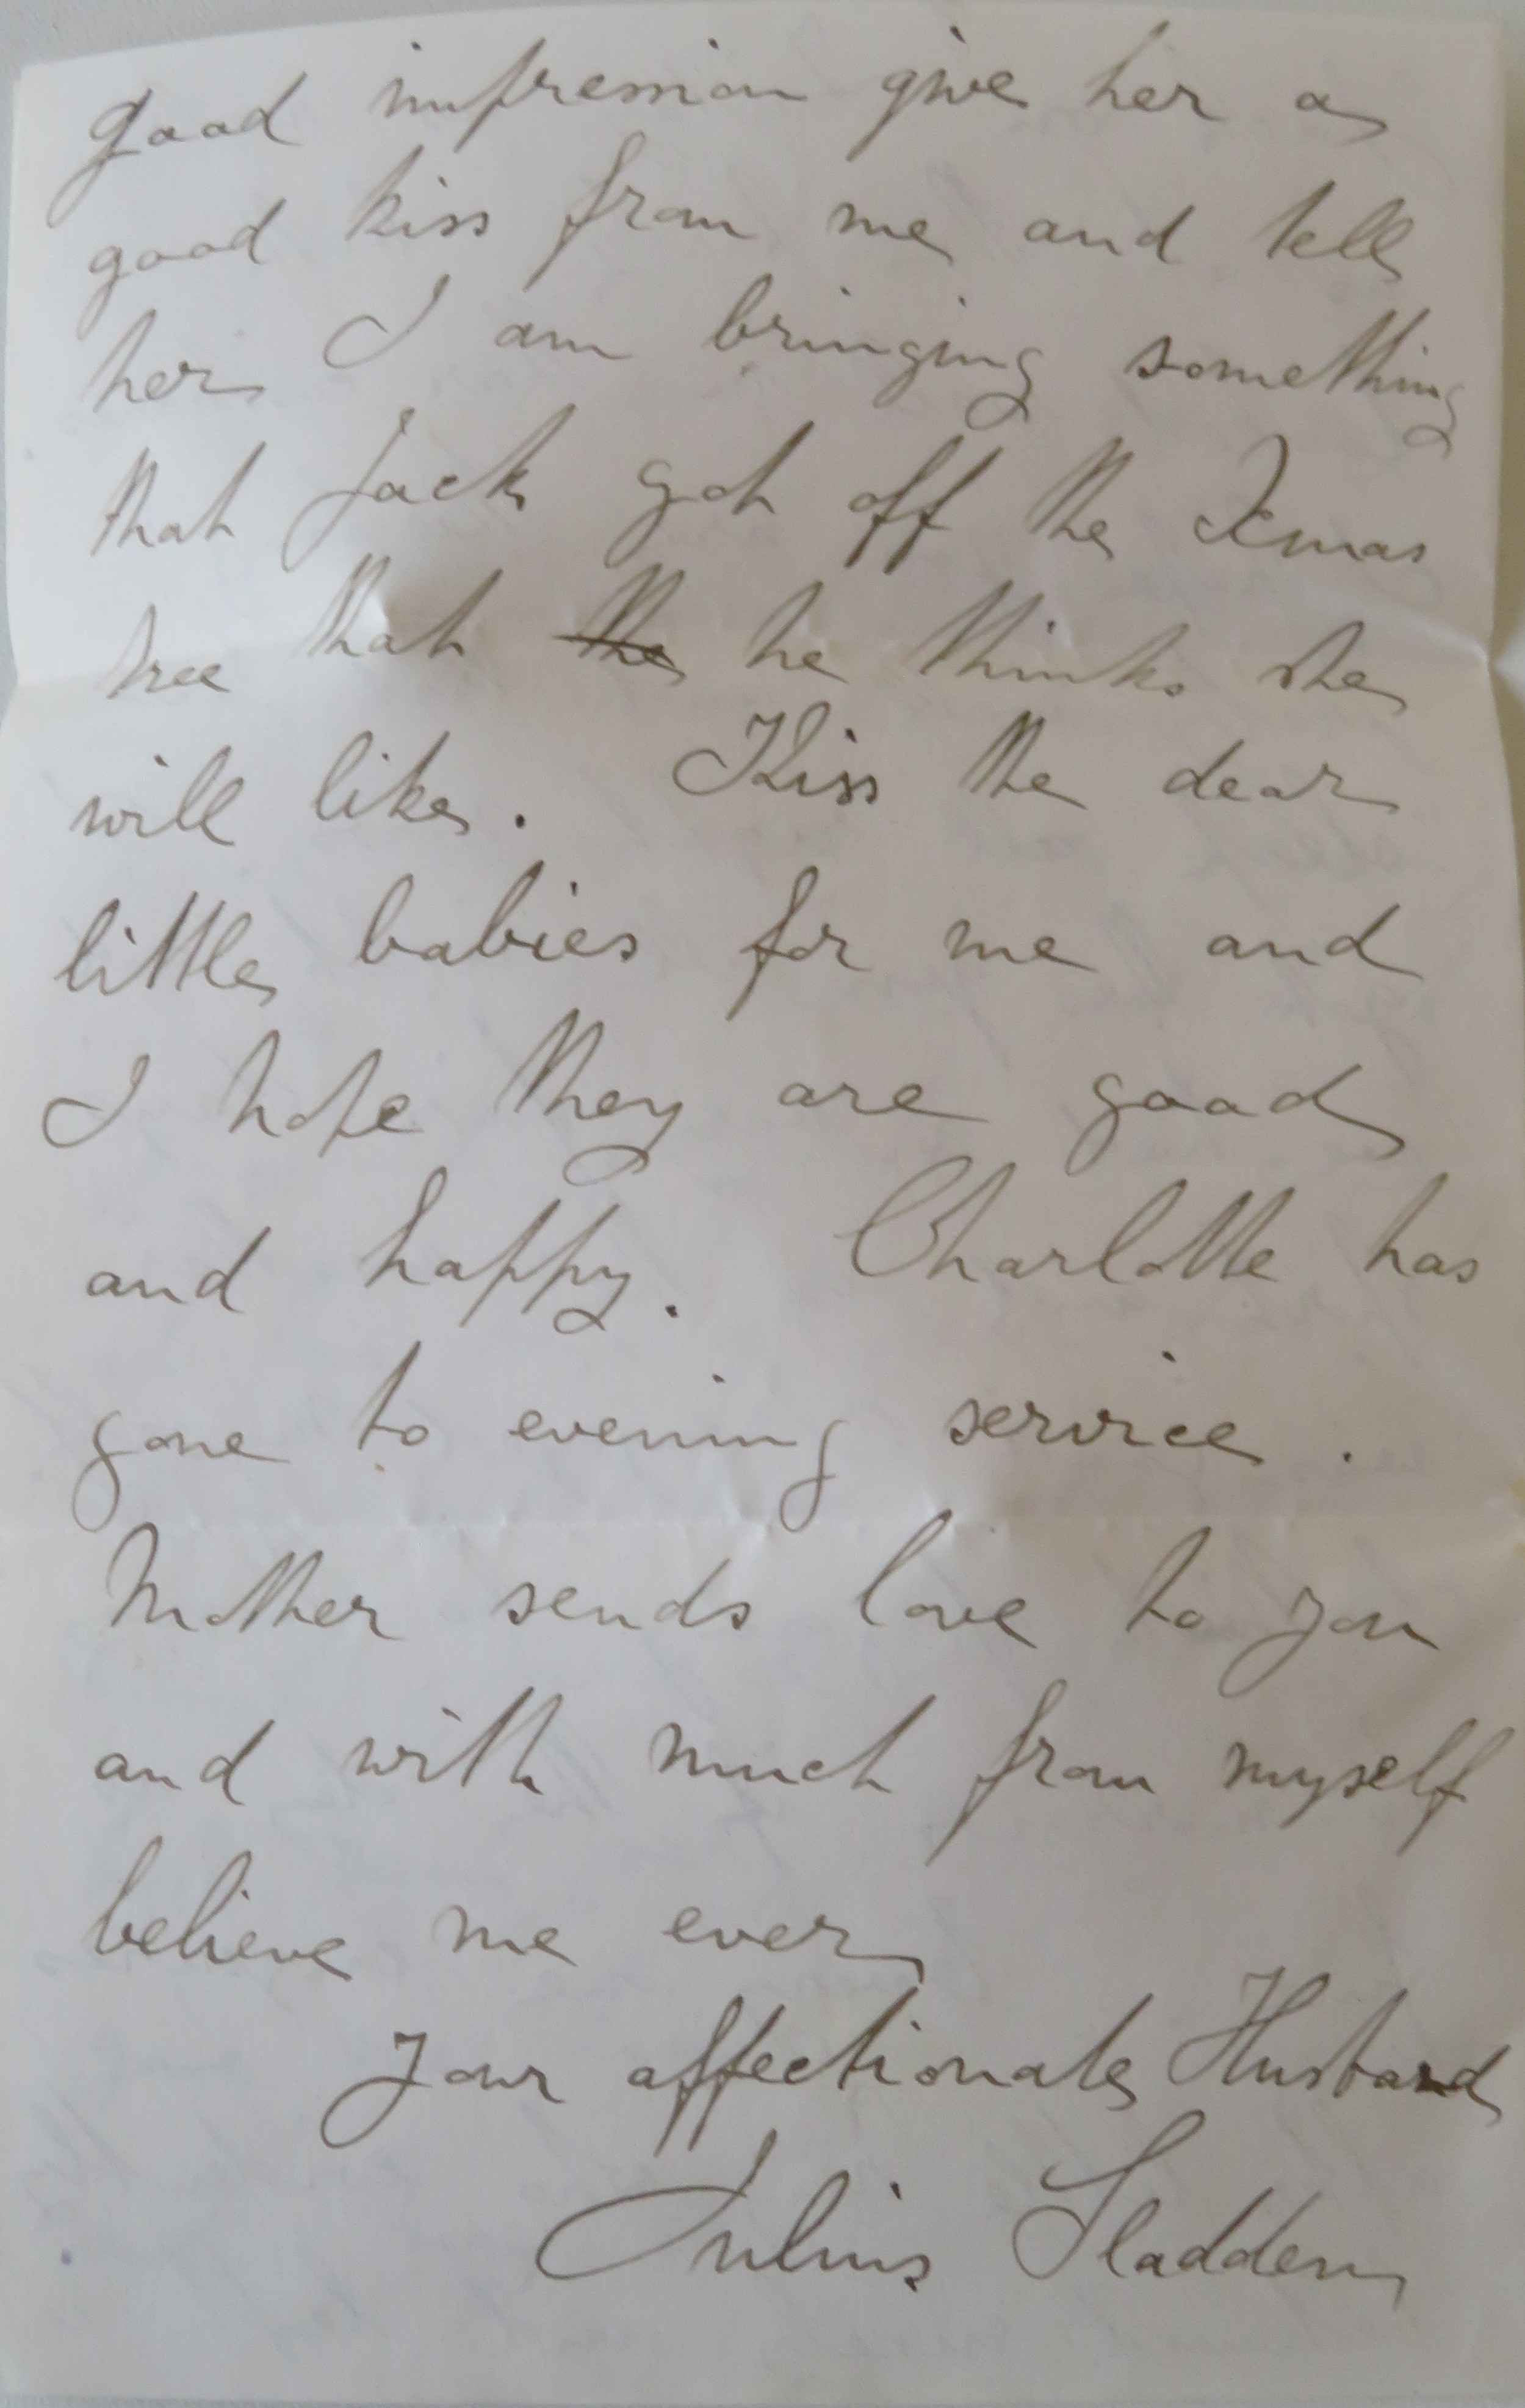 good impression give her a
good kiss from me and tell
her I am bringing something
that Jack got off the Xmas
tree that the he thinks she
will like. Kiss the dear
little babies for me and
I hope they are good
and happy. Charlotte has
gone to evening service.
Mother sends love to you
and with much from myself
believe me ever
Your affectionate Husband
Julius Sladden